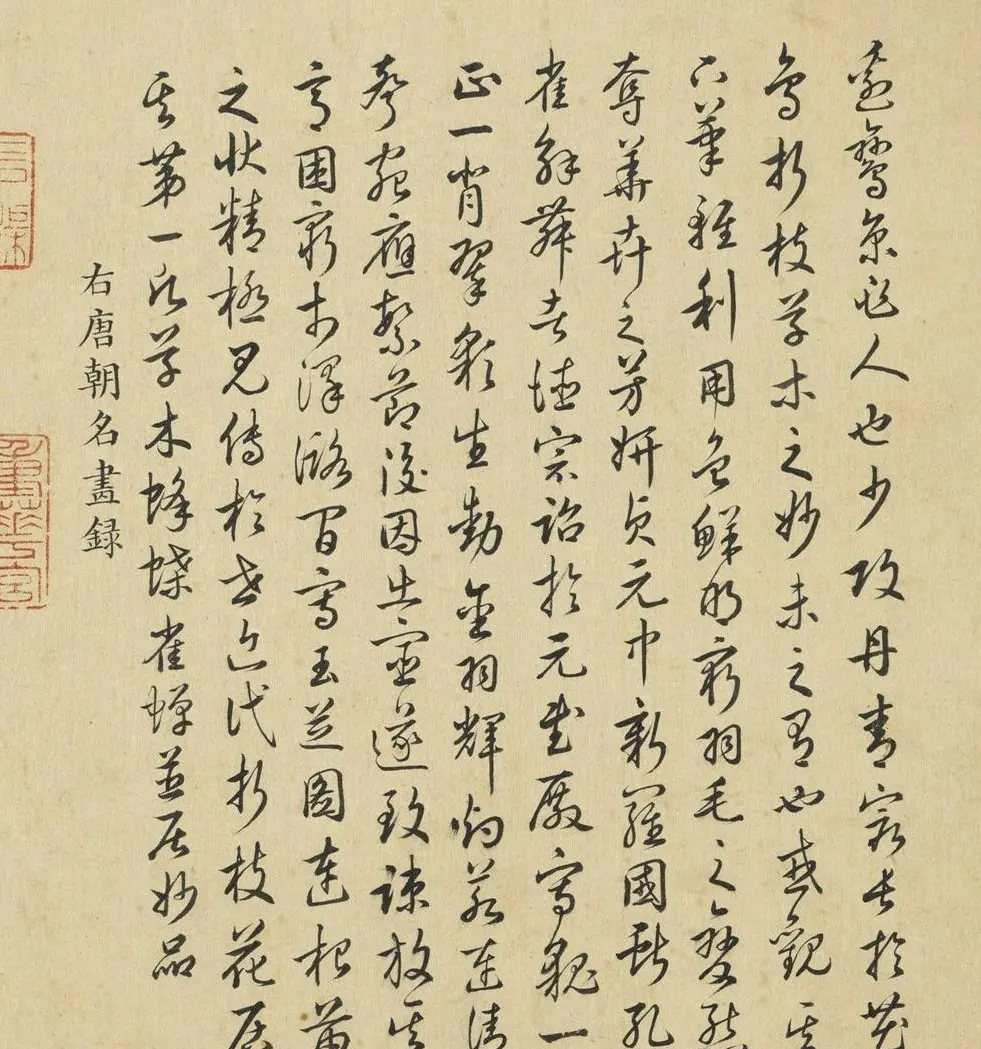 邊鸞京兆人也少攻丹青最長於花
鳥折枝草木之妙未之有也或觀其
下筆利用色鮮明窮羽毛之變態
奪華卉之芳妍貞元中新羅國獻孔
雀解舞者德宗詔於元武殿寫貌一
正一背翠彩生動金羽輝灼若連清
聲宛應繁節後因出宦遂致疎放其
意困窮於澤潞間寫玉芝圖連根苗
之狀精極見傳於世近代折枝花居
其第一凡草木蜂蝶雀蟬並居妙品
右唐朝名畫録